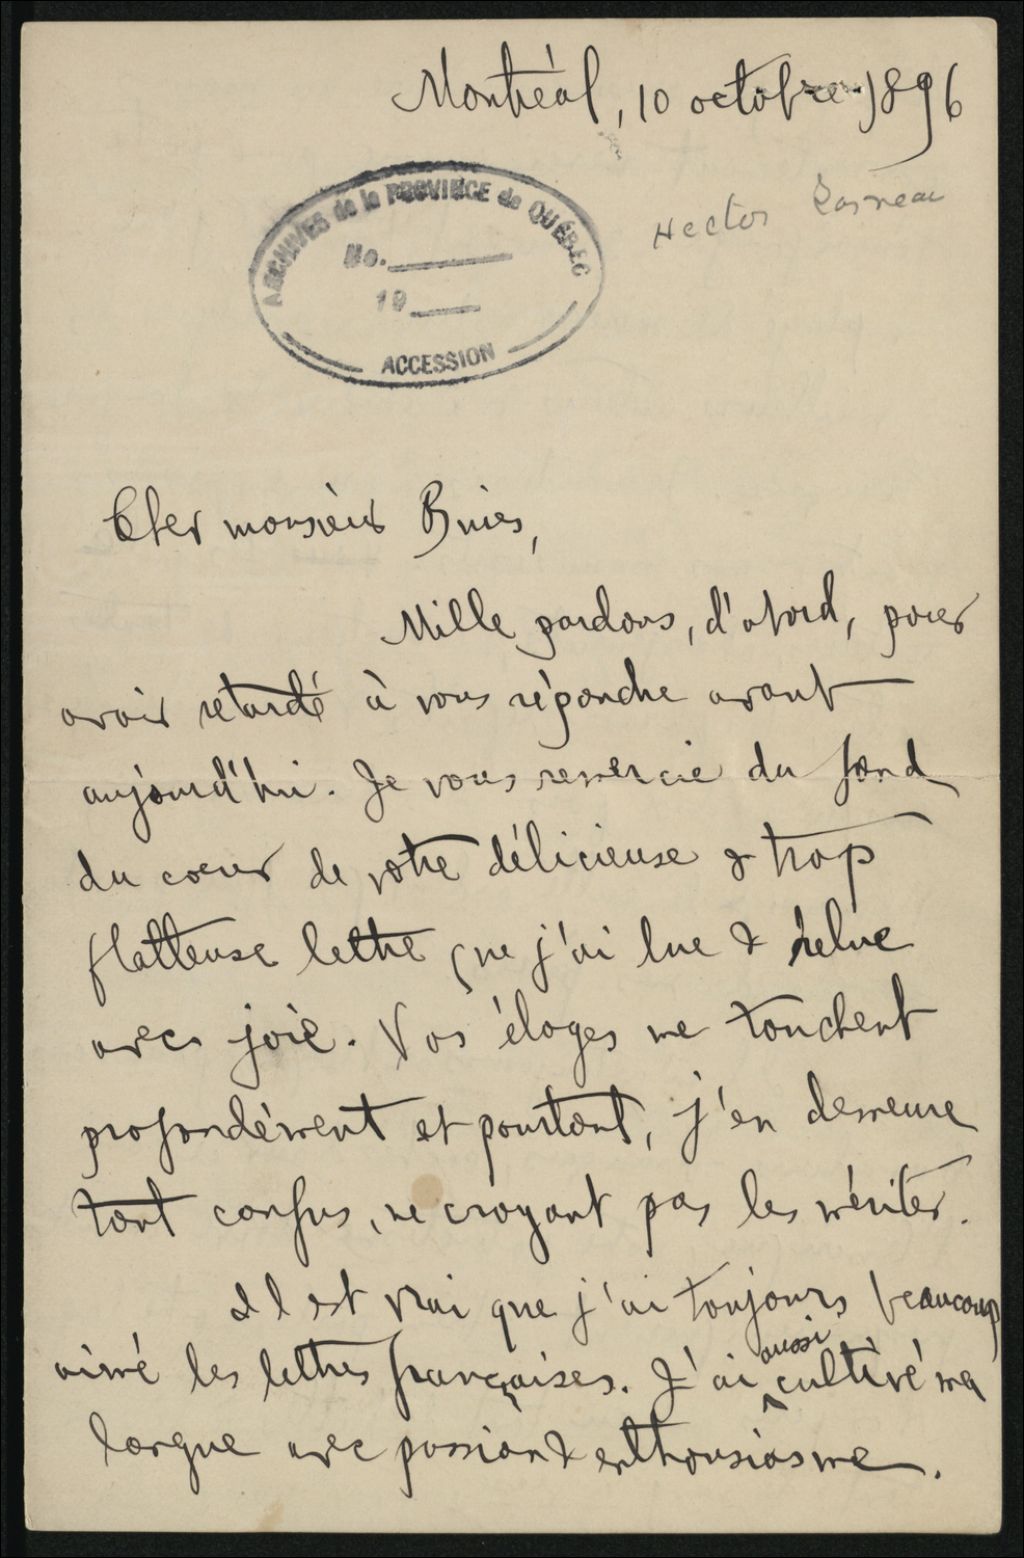 Montréal, 10 octobre 1896
Hector Garneau
ARCHIVES de la PROVINCE de QUÉBEC
No.
19
ACCESSION
Cher monsieur Buies,
Mille pardons, d'abord, pour
avoir retardé à vous répondre avant
aujourd'hui. Je vous remercie du fond
du cœur de votre délicieuse & trop
flatteuse lettre que j'ai lue & relue
avec joie. Vos éloges me touchent
profondément et pourtant, j'en demeure
tout confus, ne croyant pas les mériter.
Il est vrai que j'ai toujours beaucoup
aimé les lettres françaises. J'ai aussi cultivé ma
langue avec passion & enthousiasme.